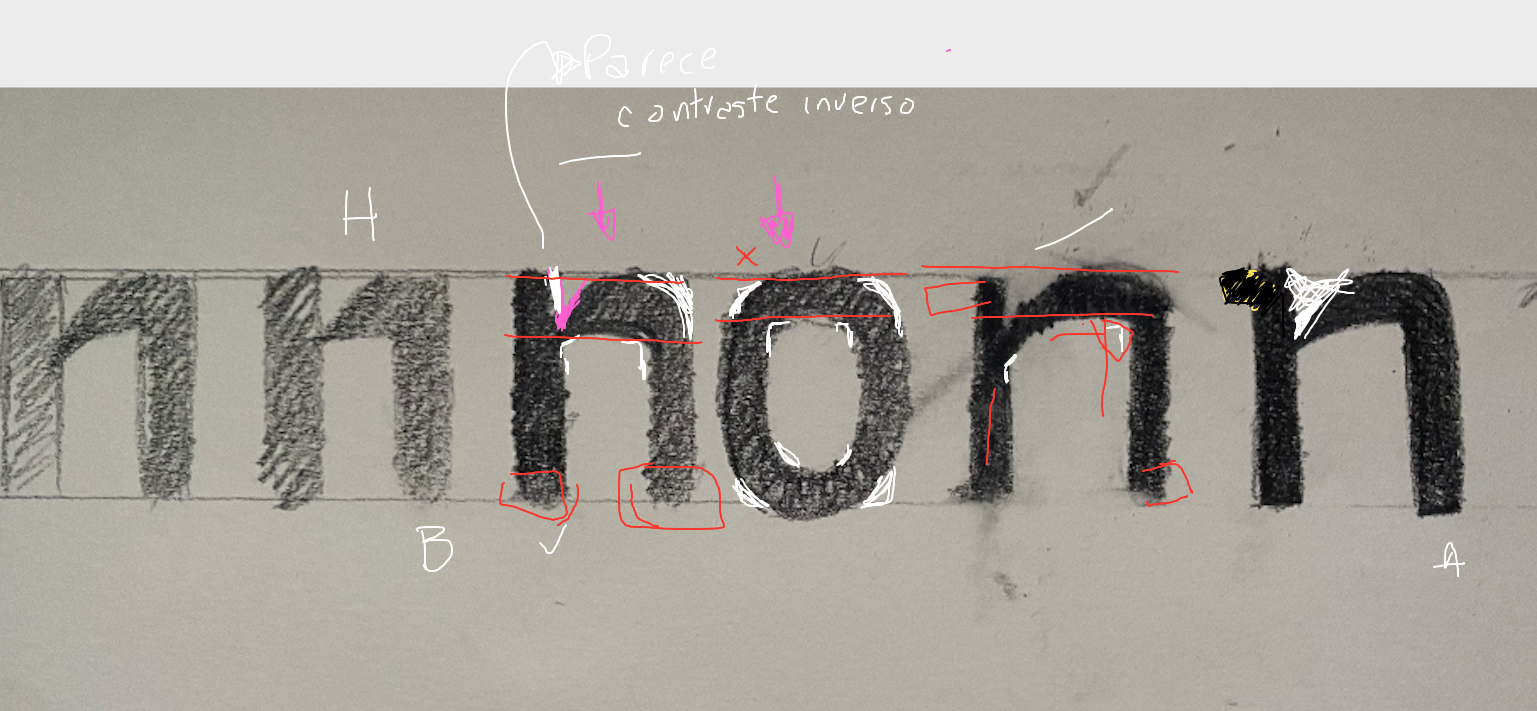 Parece
contraste inverso
H
n n n o n n
B
A